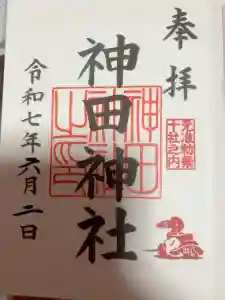 奉拝
元准勅祭
十社之内
神田神社
令和七年六月二日